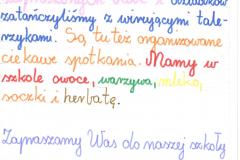 zatańczyliśmy z wirującymi tale-
rzykami. Są tu też organizowane
ciekawe spotkania. Mamy w
szkole owoce, warzywa, mleko,
soczki i herbatę.
Zapraszamy Was do naszej szkoły